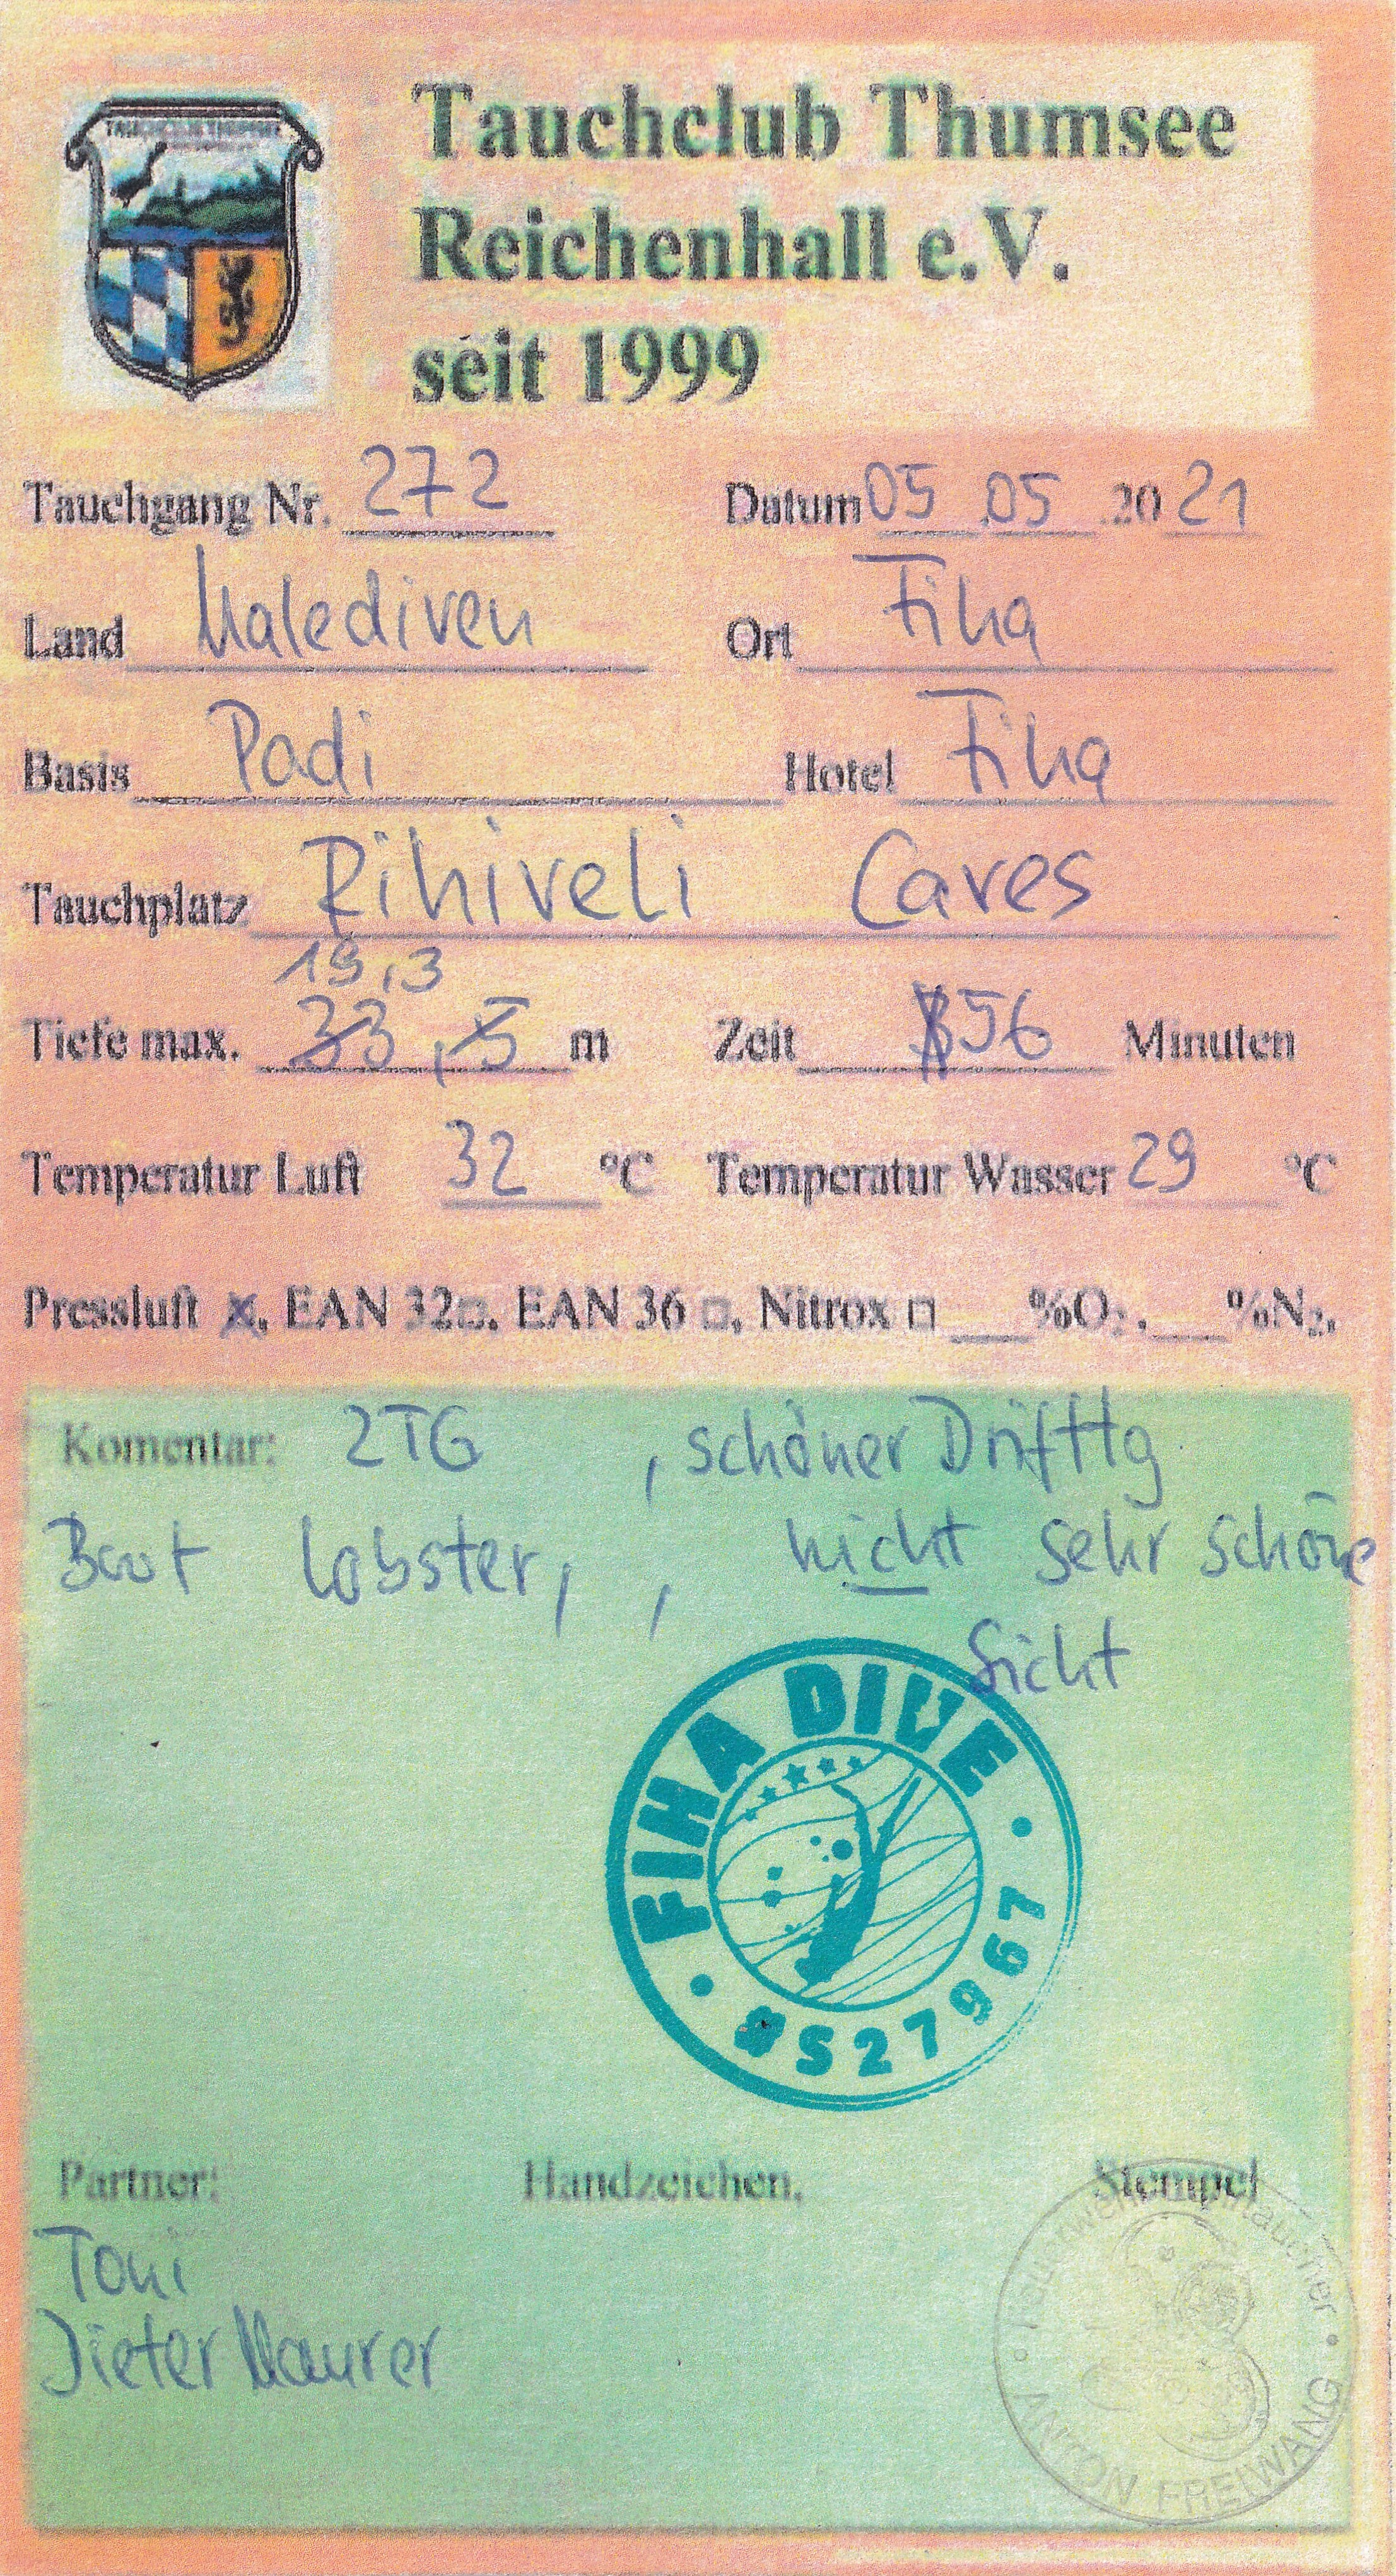 TAUCHCLUB THUMSEE
Tauchclub Thumsee
Reichenhall e.V.
seit 1999
Tauchgang Nr. 272 Datum 05.05.2021
Land Malediven Ort Fiha
Basis Padi Hotel Fiha
Tauchplatz Rihiveli Caves
19,3
Tiefe max. 33,5 m Zeit 56 Minuten
Temperatur Luft 32 °C Temperatur Wasser 29 °C
Pressluft x, EAN 32□, EAN 36 □, Nitrox □ ___%O₂, ___%N₂,
Komentar: 2TG , schöner Drifttg
Boot Lobster, , nicht sehr schöne
Sicht
FIHA DIVE
#S27967
Partner: Handzeichen, Stempel
Toni
Dieter Maurer
ANTON FREIWANG